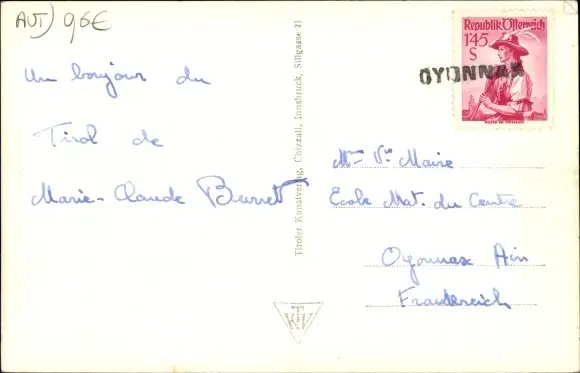 AUT) 96€
Un bonjour du
Tirol de
Marie-Claude
Tiroler Kunstverlag, Chizzali, Innsbruck, Sillgasse 21
KTV
Republik Österreich
1·45
S
OYONNAX
Mme Vve Maire
Ecole Mat. du Centre
Oyonnax Ain
Frankreich